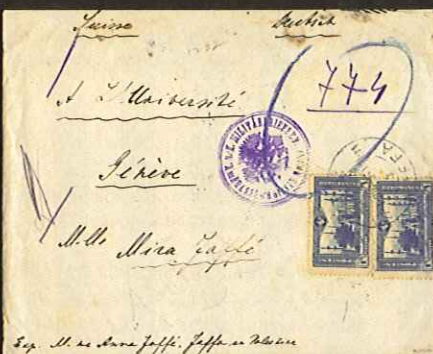 Suisse Deutsch
774
A L'Université
Génève
Mlle Mira Jaffé
Exp. M. me Anna Jaffé. Jaffa en Palestine